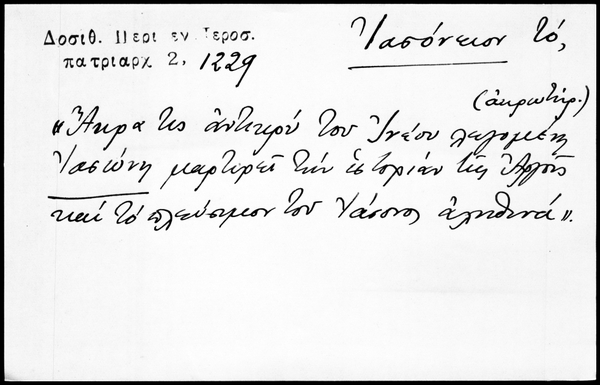 Δοσιθ. Περι εν Ιεροσ.
πατριαρχ 2, 1229
Ἰασόνειον τό,
(ἀκρωτήρ.)
«Ἄκρα τις ἀντικρύ τοῦ Ὀνέου λεγομένη
Ἰασώνη μαρτυρεῖ τήν ἱστορίαν τῆς Ἀργοῦς
καί τό πλεύσιμον τοῦ Ἰάσονος ἀληθινά».